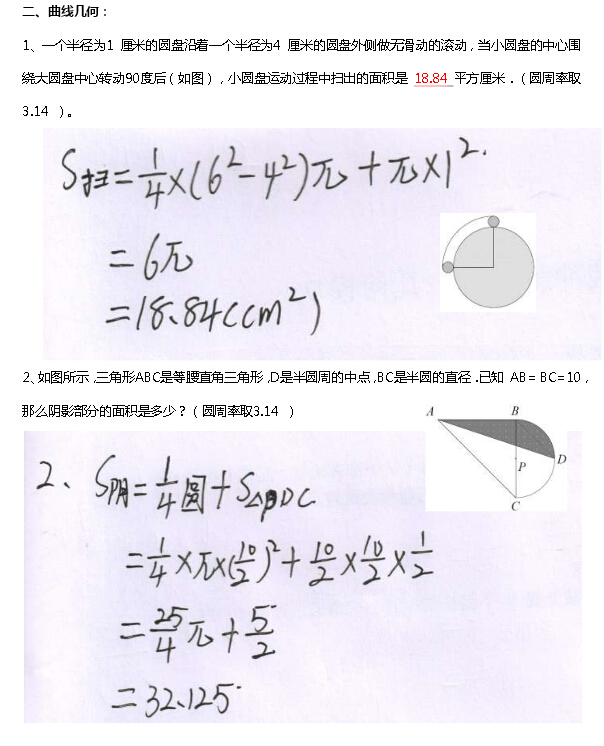 二、曲线几何：
1、一个半径为1 厘米的圆盘沿着一个半径为4 厘米的圆盘外侧做无骨动的滚动，当小圆盘的中心围
绕大圆盘中心转动90度后（如图），小圆盘运动过程中扫出的面积是 18.84 平方厘米．（圆周率取
3.14 ）。
S扫=1/4×(6²-4²)π+π×1².
=6π
=18.84(cm²)
2、如图所示，三角形ABC是等腰直角三角形，D是半圆周的中点，BC是半圆的直径．已知 AB＝BC=10，
那么阴影部分的面积是多少？（圆周率取3.14 ）
A B
D
P
C
2、S阴=1/4圆+S△BDC
=1/4×π×(10/2)²+10/2×10/2×1/2
=25/4π+5/2
=32.125